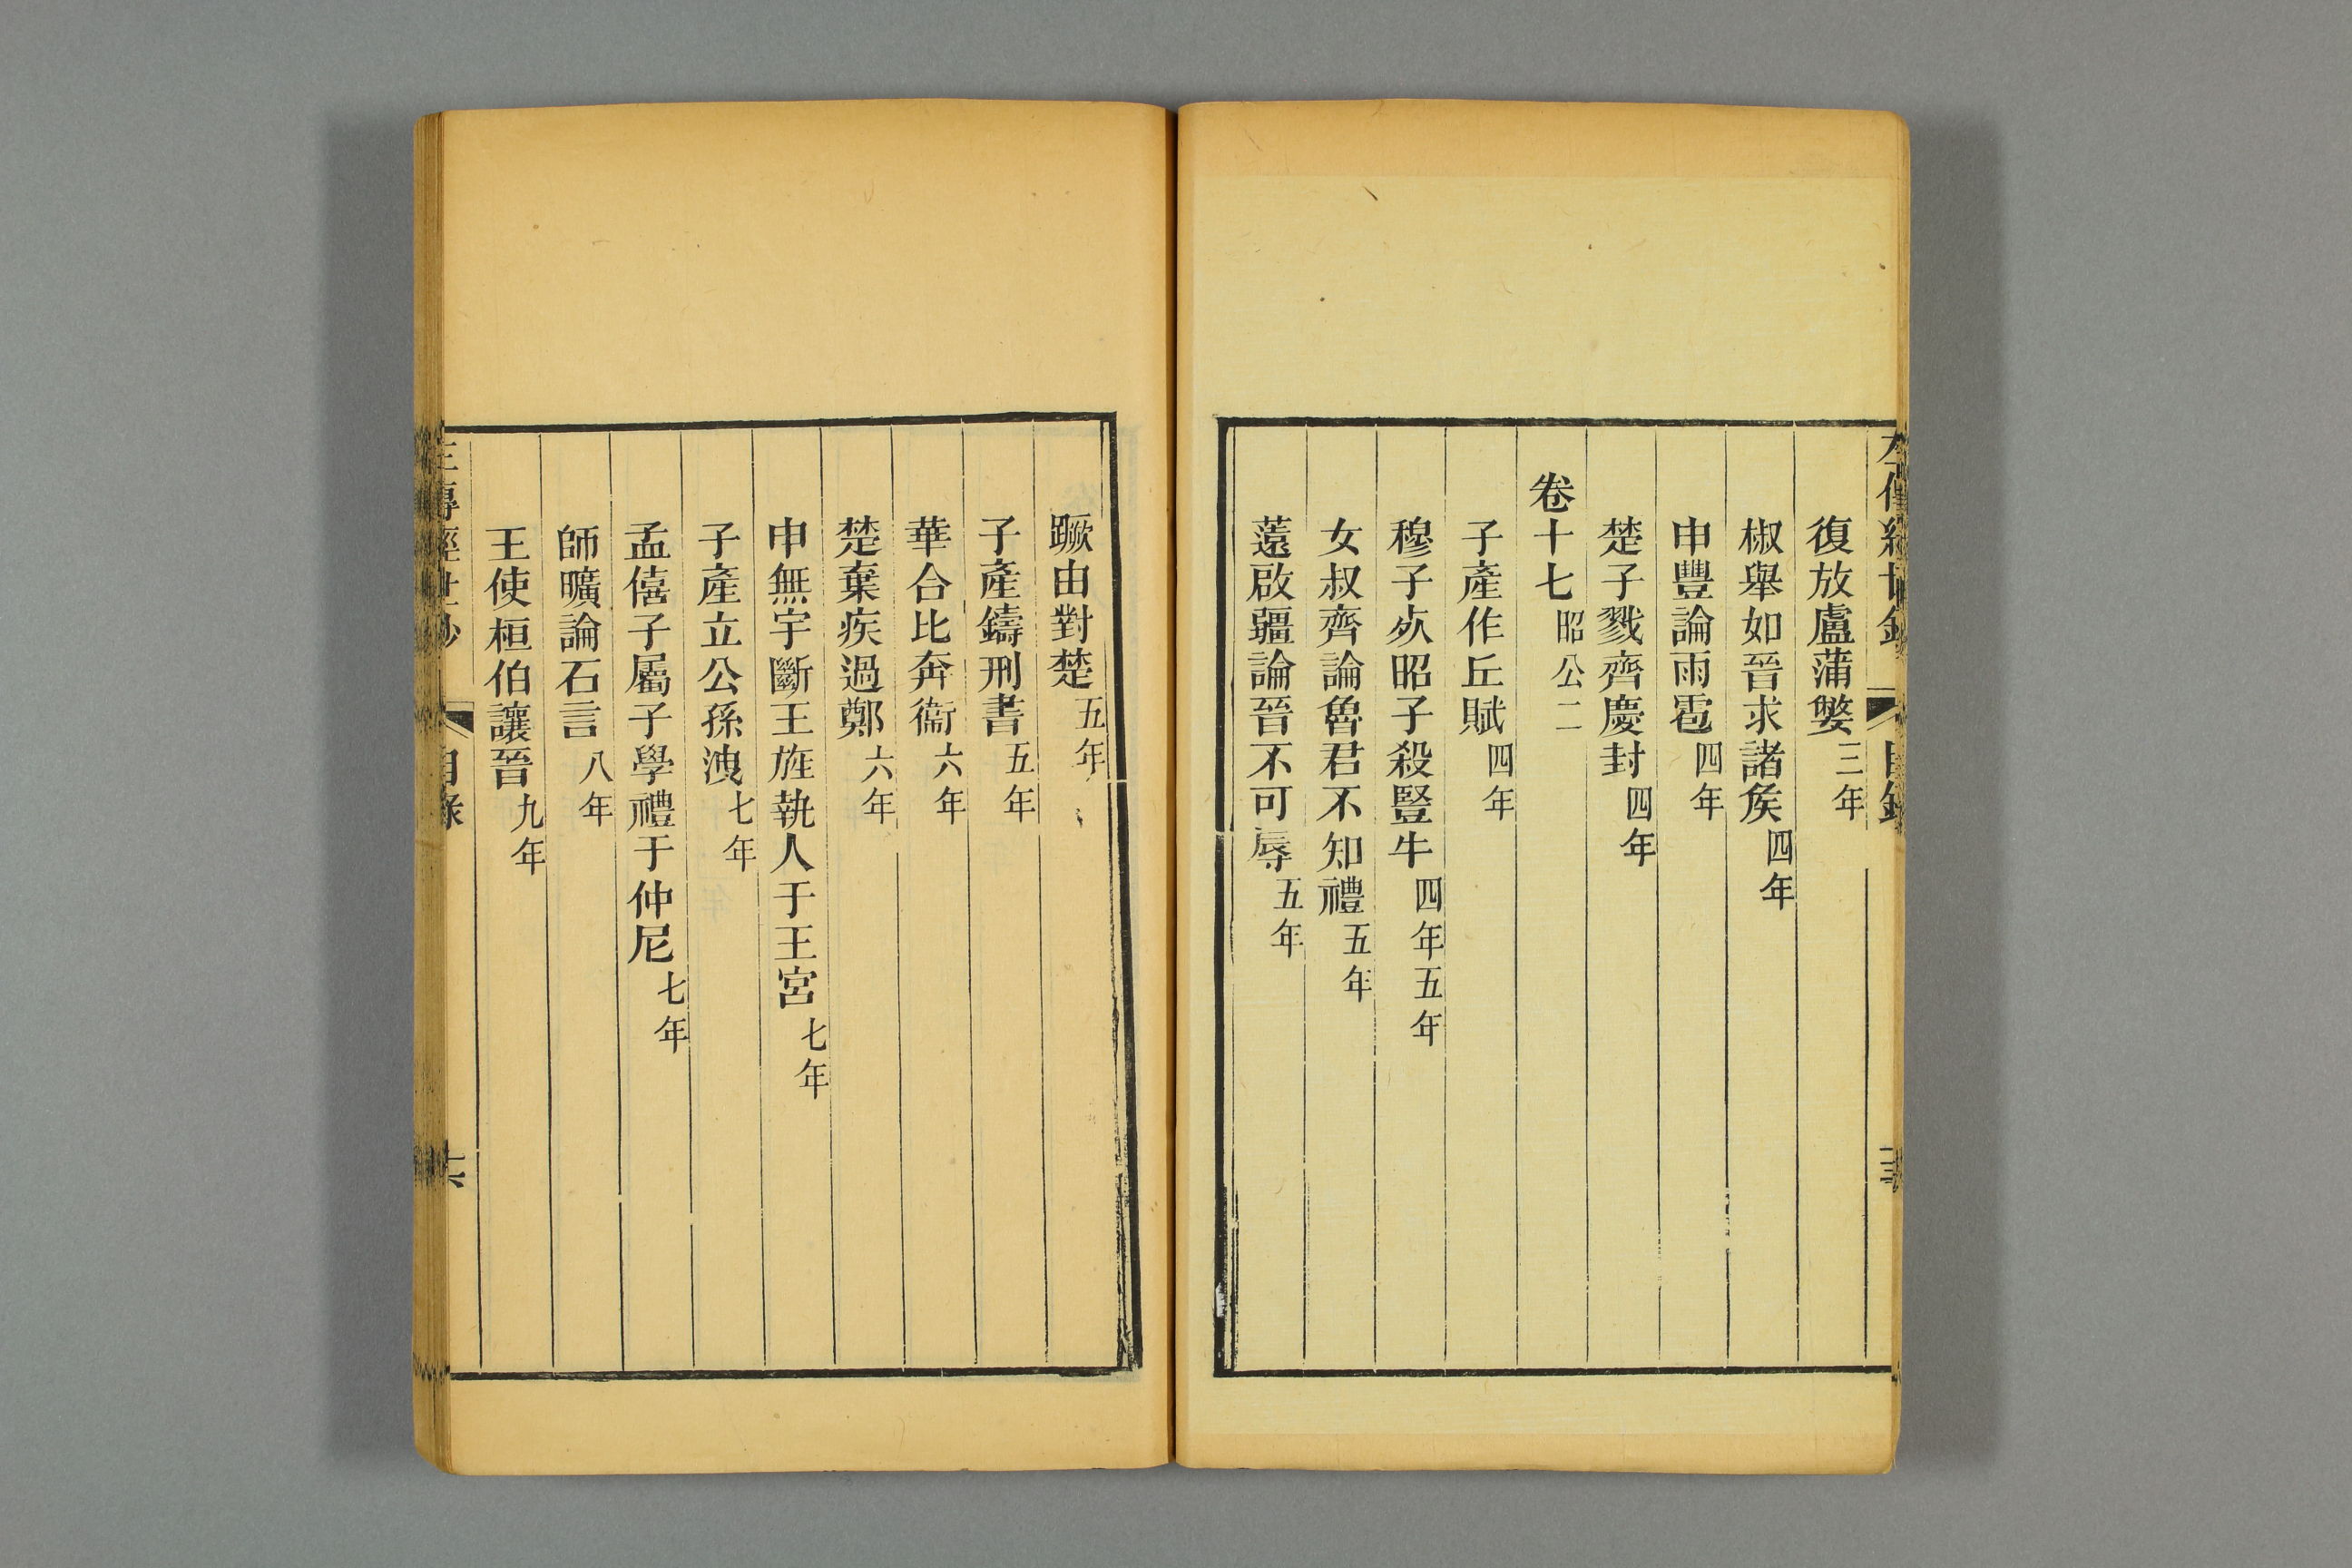 復放盧蒲嫳三年
椒舉如晉求諸矦四年
申豐論雨雹四年
楚子戮齊慶封四年
卷十七昭公二
子產作丘賦四年
穆子夗昭子殺豎牛四年五年
女叔齊論魯君不知禮五年
薳啟疆論晉不可辱五年
蹶由對楚五年
子產鑄刑書五年
華合比奔衞六年
楚棄疾過鄭六年
申無宇斷王旌執人于王宮七年
子產立公孫洩七年
孟僖子屬子學禮于仲尼七年
師曠論石言八年
王使桓伯讓晉九年
傳經世鈔 目錄